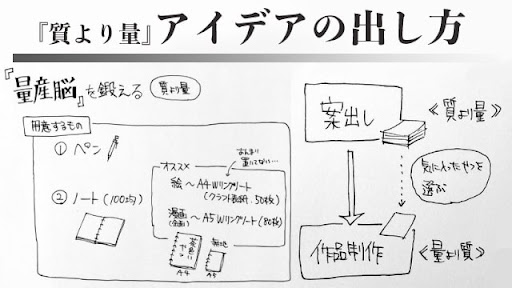 『質より量』アイデアの出し方
『量産脳』を鍛える
質より量
用意するもの
① ペン
② ノート(100均)
あんまり
置いてない…
オススメ
絵〜A4Wリングノート
(クラフト表紙・50枚)
漫画〜A5Wリングノート(80枚)
(企画)
茶色い
やつ
無地
A4
A5
案出し
《質より量》
気に入ったやつを
選ぶ
作品制作
《量より質》